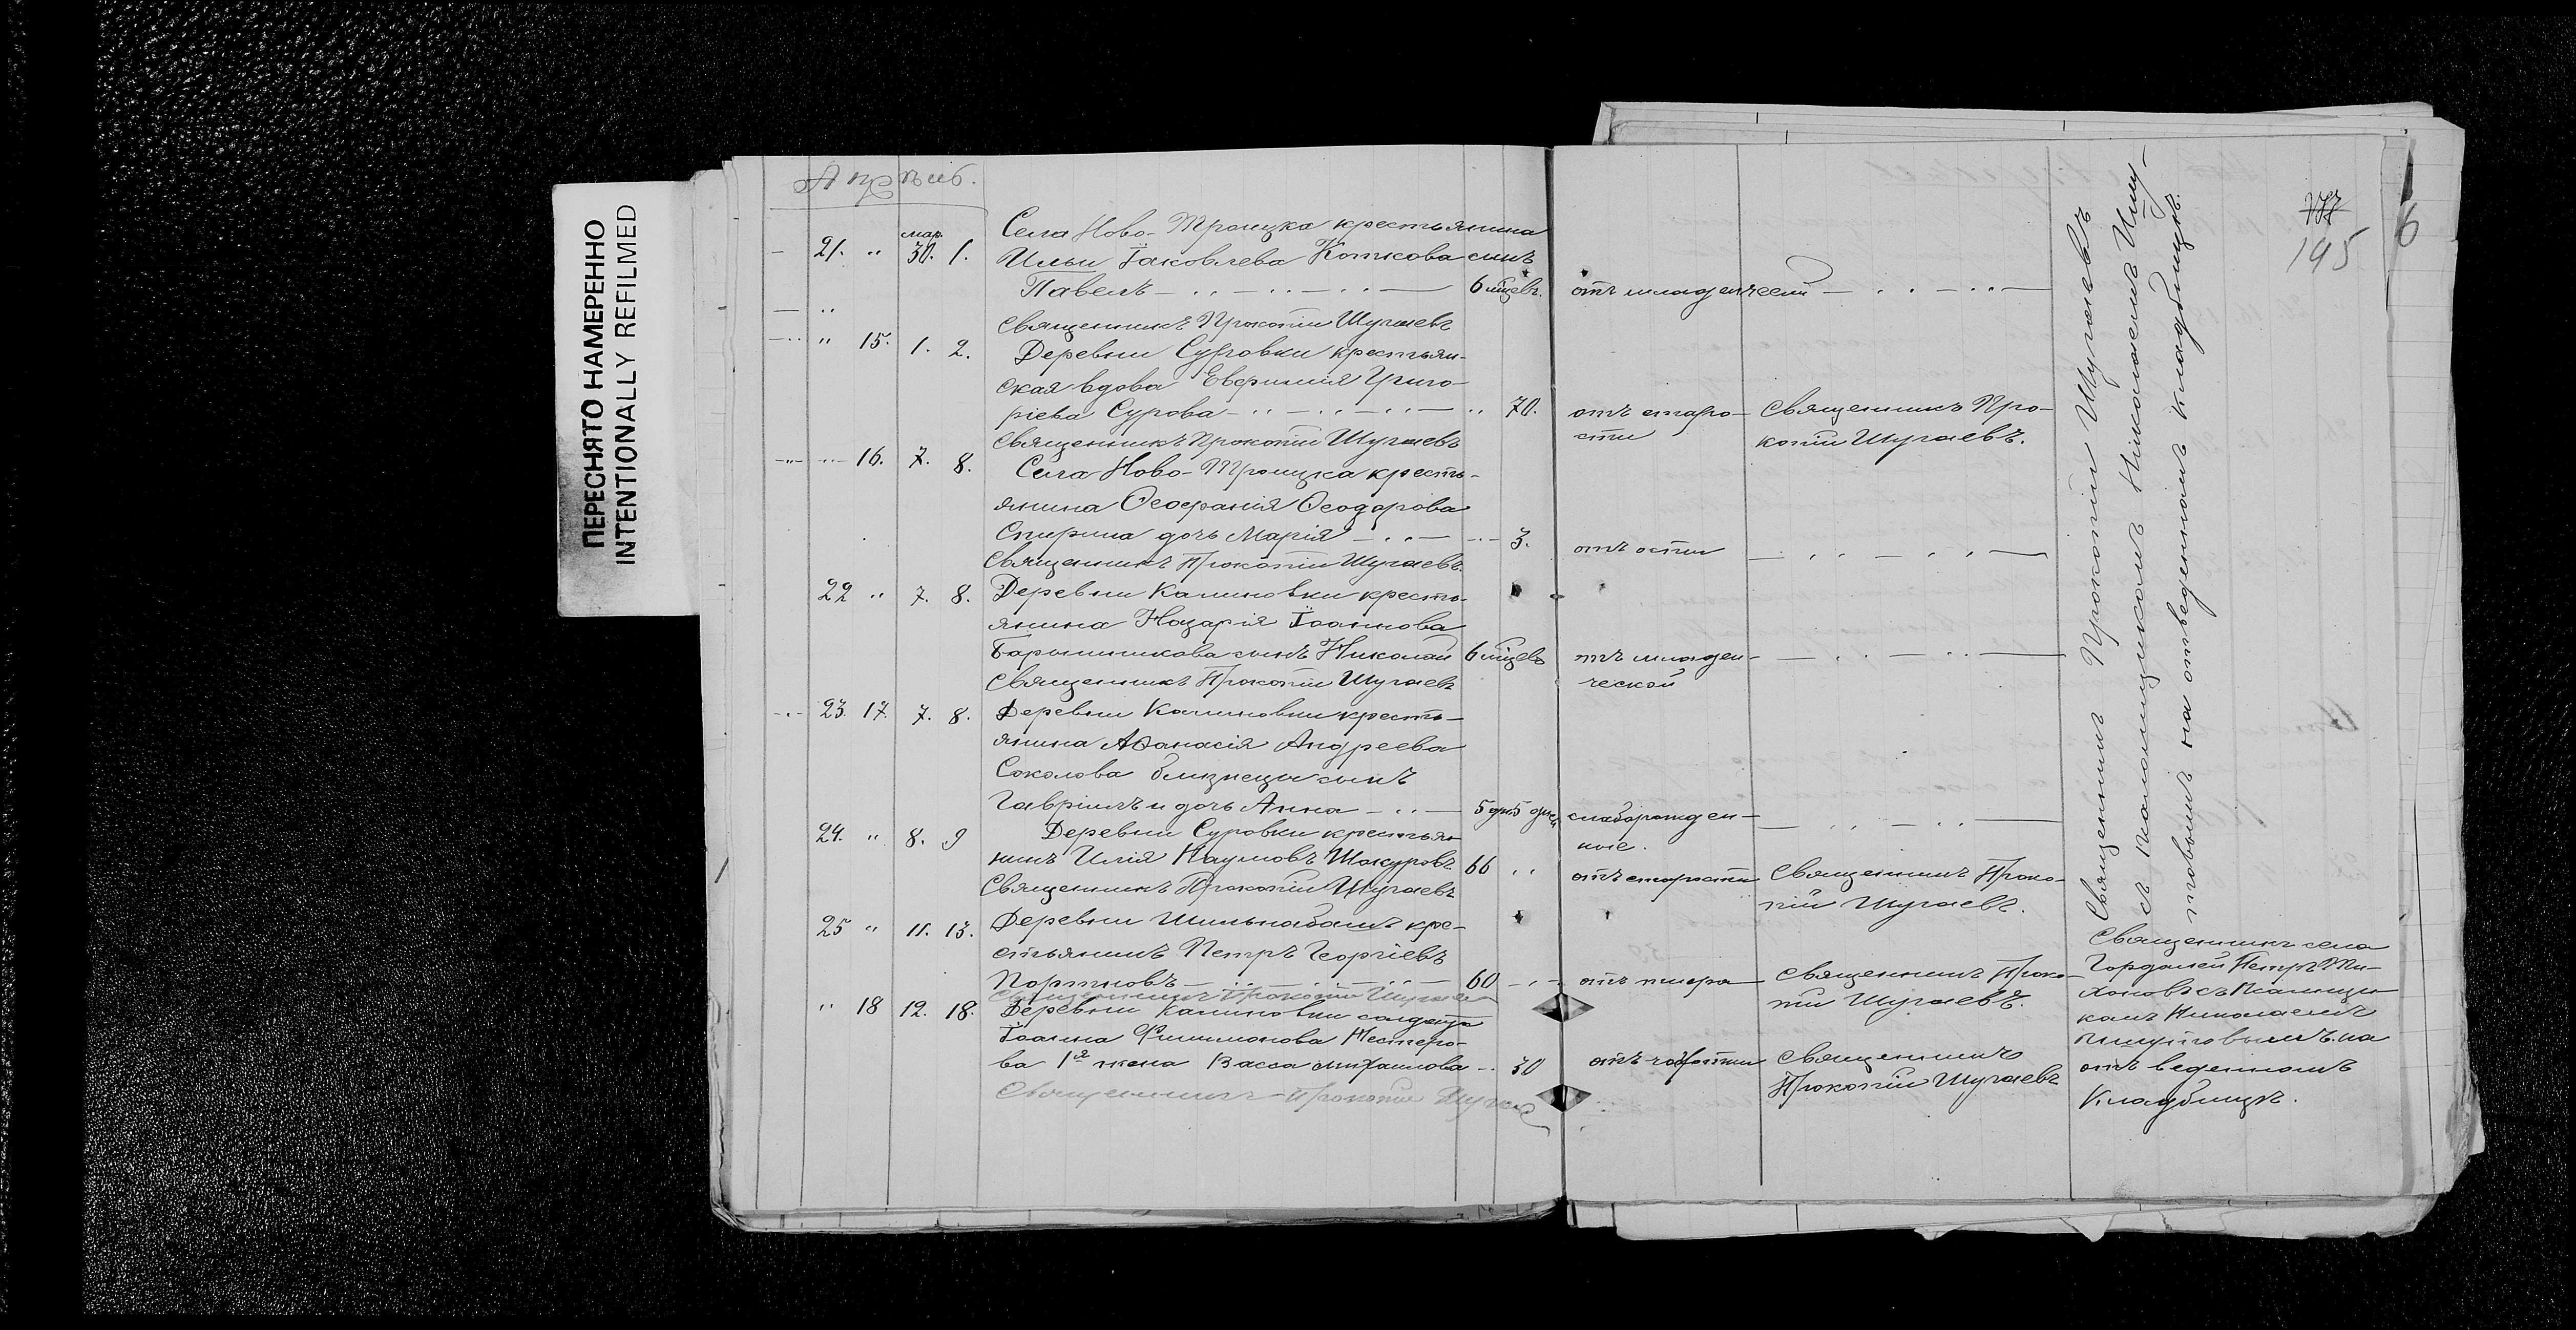 ПЕРЕСНЯТО НАМЕРЕННО
INTENTIONALLY REFILMED
Апрѣль.
21. " мар. 30. 1. Села Ново-Троицка крестьянина
Ильи Іаковлева Коткова сынъ
Павелъ 6 мцевъ. отъ младенческой
Священникъ Прокопій Шугаевъ
" 15. 1. 2. Деревни Суровки крестьян-
ская вдова Евфимія Григо-
ріева Сурова " 70. отъ старо-
сти
Священникъ Про-
копій Шугаевъ.
Священникъ Прокопій Шугаевъ
16. 7. 8. Села Ново-Троицка кресть-
янина Ѳеофанія Ѳеодорова
Спирина дочь Марія 3. отъ оспы
Священникъ Прокопій Шугаевъ.
22 " 7. 8. Деревни Калиновки кресть-
янина Назарія Іоаннова
Барышникова сынъ Николай 6 мцевъ отъ младен-
ческой
Священникъ Прокопій Шугаевъ
23. 17. 7. 8. Деревни Калиновки кресть-
янина Аѳанасія Андреева
Соколова близнецы сынъ
Гавріилъ и дочь Анна 5 дн. 5 дней слаборожден-
ные.
24. " 8. 9 Деревни Суровки крестьян-
нинъ Илія Наумовъ 66 " отъ старости Священникъ Проко-
пій Шугаевъ.
Священникъ Прокопій Шугаевъ
25 " 11. 13. Деревни кре-
стьянинъ Петръ Георгіевъ
Портновъ 60 Священникъ Проко-
пій Шугаевъ.
Священникъ Прокопій Шугаевъ
" 18 12. 18. Деревни Калиновки солдата
Іоанна Филимонова Нестеро-
ва 1я жена Васса Михаилова 30 отъ чахотки Священникъ
Прокопій Шугаевъ
Священникъ Прокопій Шугаевъ
Священникъ Прокопій Шугаевъ
съ псаломщикомъ Николаемъ
на отведенномъ кладбищѣ.
Священникъ села
Петръ Ти-
хоновъ съ псаломщи-
комъ Николаемъ
на
отведенномъ
кладбищѣ.
177
195
6